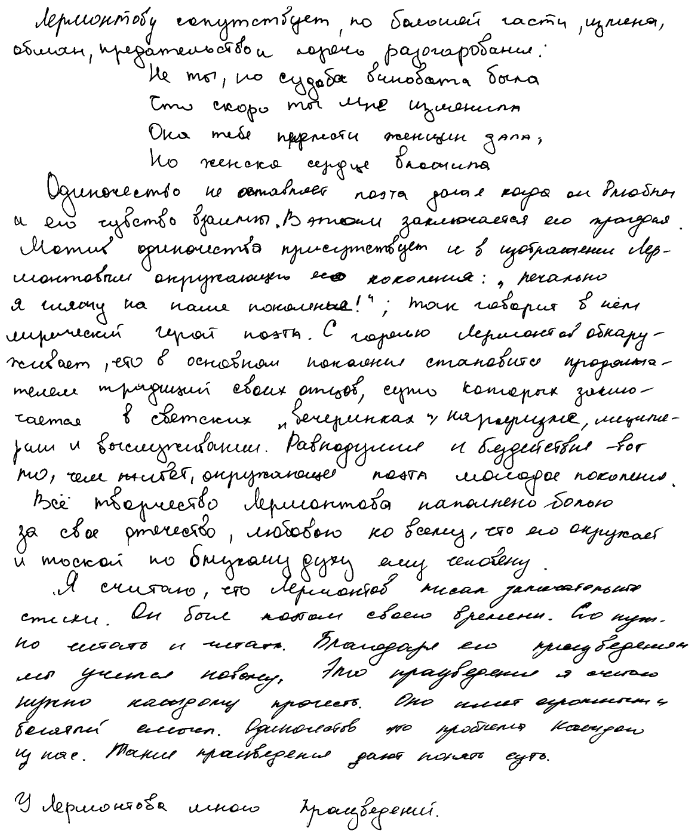 Лермонтову сопутствует, по большей части, измена,
обман, предательство и горечь разочарования:
Не ты, но судьба виновата была
Что скоро ты мне изменила
Она тебе прелести женщин дала,
Но женское сердце вложила
Одиночество не оставляет поэта даже когда он влюблен
и его чувство взаимны. В этом заключается его трагедия.
Мотив одиночества присутствует и в изображении Лер-
монтовым окружающего его поколения: „печально
я гляжу на наше поколенье!"; так говорит в нём
лирический герой поэта. С горечью Лермонтов обнару-
живает, что в основном поколение становится продолжа-
телем традиций своих отцов, суть которых заклю-
чается в светских „вечеринках",
и выслуживании. Равнодушие и бездействие - вот
то, чем живёт, окружающее поэта молодое поколение.
Всё творчество Лермонтова наполнено болью
за свое отечество, любовью ко всему, что его окружает
и тоской по близкому духу ему человеку.
Я считаю, что Лермонтов писал замечательные
стихи. Он был поэтом своего времени. Его нуж-
но читать и читать. Благодаря его произведениям
мы учимся новому. Это произведение я считаю
нужно каждому прочесть. Оно имеет огромный и
богатый смысл. Одиночество это проблема каждого
из нас. Такие произведения дают понять суть.
У Лермонтова много произведений.